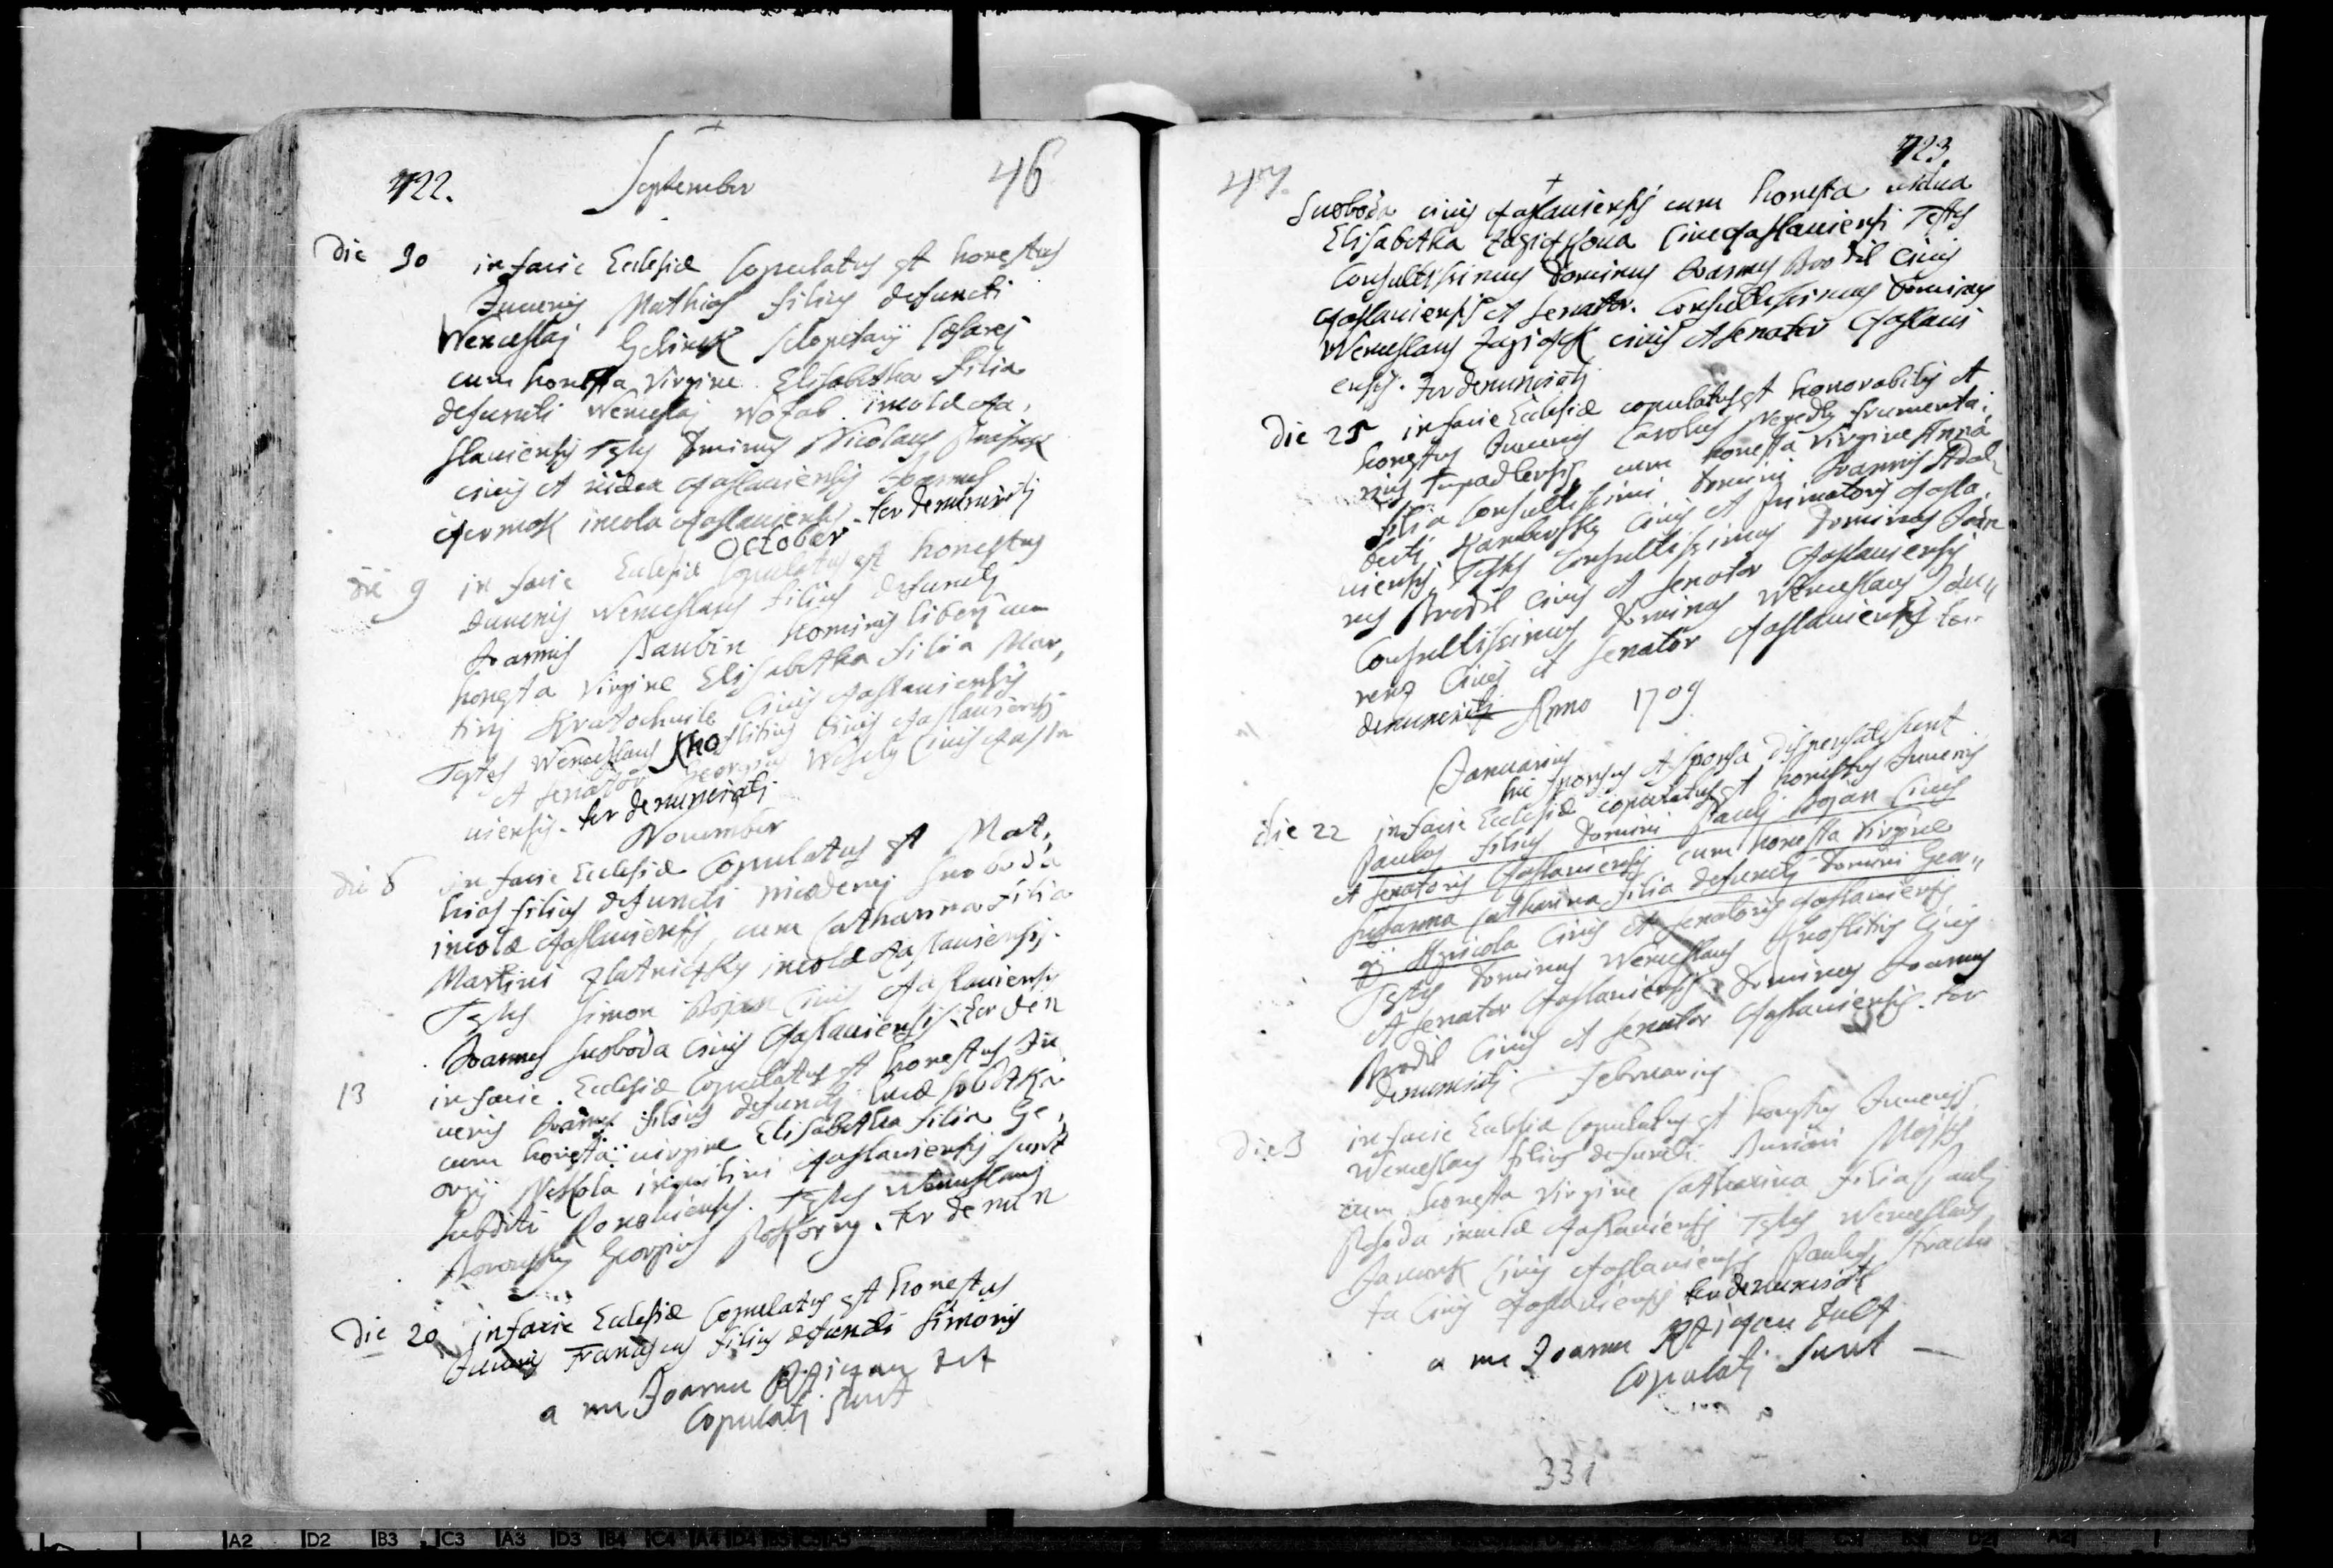 722. September 46
Die 30 in facie Ecclesiæ Copulatus est honestus
Juvenis Mathias filius defuncti
Wenceslaj Gelinek Sclopetarij Cæsarej
cum honesta Virgine Elisabetha filia
defuncti Wenceslaj incolæ Cza,
slaviensis Testes Dominus Nicolaus
civis et Czaslaviensis Joannes
incola Czaslaviensis. ter denunciatj
October
die 9 in facie Ecclesiæ Copulatus est honestus
Juvenis Wenceslaus filius defunctj
Joannis Baubin hominis liberj cum
honesta Virgine Elisabetha filia Mar,
tinj Kratochwile Civis Czaslaviensis
Testes Wenceslaus Knoflitius Civis Czaslaviensis
et Senator Georgius Wesely Civis Czasla
viensis. ter denunciatj
November
die 6 in facie Ecclesiæ Copulatus est Mat,
hias filius defuncti Nicodemj Swoboda
incolæ Czaslaviensis, cum Catharina filia
Martini Zlatniczky incolæ Czaslaviensis.
Testes Simon Bojan Civis Czaslaviensis
Joannes Swoboda Civis Czaslaviensis. ter den
13 in facie Ecclesiæ Copulatus est honestus Ju
venis Joannes filius defunctj Lucæ
cum honesta virgine Elisabetha filia Ge,
orgij inquilini Czaslaviensis sunt
subditi Ronoviensis. Testes Wenceslaus
Georgius. ter denun
Die 20 in facie Ecclesiæ Copulatus est honestus
Juvenis Franciscus filius defuncti Simonis
a me Joanne
Copulatj sunt
47. 723.
Swoboda civis Czaslaviensis cum honesta vidua
Elisabetha Cive Czaslaviensi Testes
Consultissimus Dominus Joannes Brodil Civis
Czaslaviensis et Senator. Consultissimus Dominus
Wenceslaus civis et Senator Czaslavi
ensis. ter denunciatj
Die 25 in facie Ecclesiæ copulatus est honorabilis et
honestus Juvenis Carolus Negedly frumenta,
rius Tupadlensis, cum honesta Virgine Anna
filia Consultissimi Domini Joannis Adal,
berti Civis et Primatoris Czasla,
viensis Testes Consultissimus Dominus Joan
nes Brodil Civis et Senator Czaslaviensis
Consultissimus Dominus Wenceslaus
Civis et Senator Czaslaviensis ter
denunciatj Anno 1709
Januarius
hic sponsus et sponsa dispensatj sunt
die 22 in facie Ecclesiæ copulatus est honestus Juvenis
Paulus filius Domini Paulj Bojan Civis
et Senatoris Czaslaviensis cum honesta Virgine
Susanna Catharina filia defunctj Domini Geor,,
gij Agricola Civis et Senatoris Czaslaviensis
Testes Dominus Wenceslaus Knoflitius Civis
et Senator Czaslaviensis Dominus Joannes
Brodil Civis et Senator Czaslaviensis. ter
denunciatj Februarius
Die 3 in facie Ecclesiæ Copulatus est honestus Juvenis
Wenceslaus filius defuncti
cum honesta Virgine Catharina filia Paulj
incolæ Czaslaviensis Testes Wenceslaus
Civis Czaslaviensis Paulus
Civis Czaslaviensis ter denunciatj
a me Joanne
Copulatj sunt
331
A2 D2 B3 C3 A3 D3 B4 C4 A4 D4 B5 C5 A5